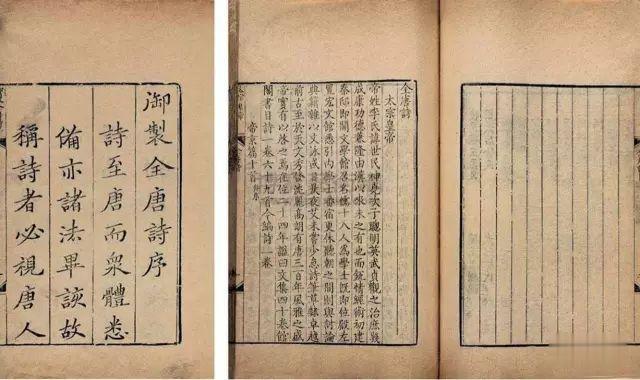 御製全唐詩序
詩至唐而衆體悉
備亦諸法畢該故
稱詩者必視唐人
全唐詩
太宗皇帝
帝姓李氏諱世民神堯次子聰明英武貞觀之治庶幾
成康功德兼隆由漢以來未之有也而銳情經術初建
秦邸即開文學館召名儒十八人為學士既即位殿左
置宏文館悉引內學士番宿更休聽朝之間則與討論
典籍雜以文詠或日昃夜艾未嘗少怠詩筆草隸卓越
前古至於天文秀發沈麗高朗有唐三百年風雅之盛
帝實有以啓之焉在位二十四年諡曰文集四十卷館
閣書目詩一卷六十九首今編詩一卷
帝京篇十首 并序